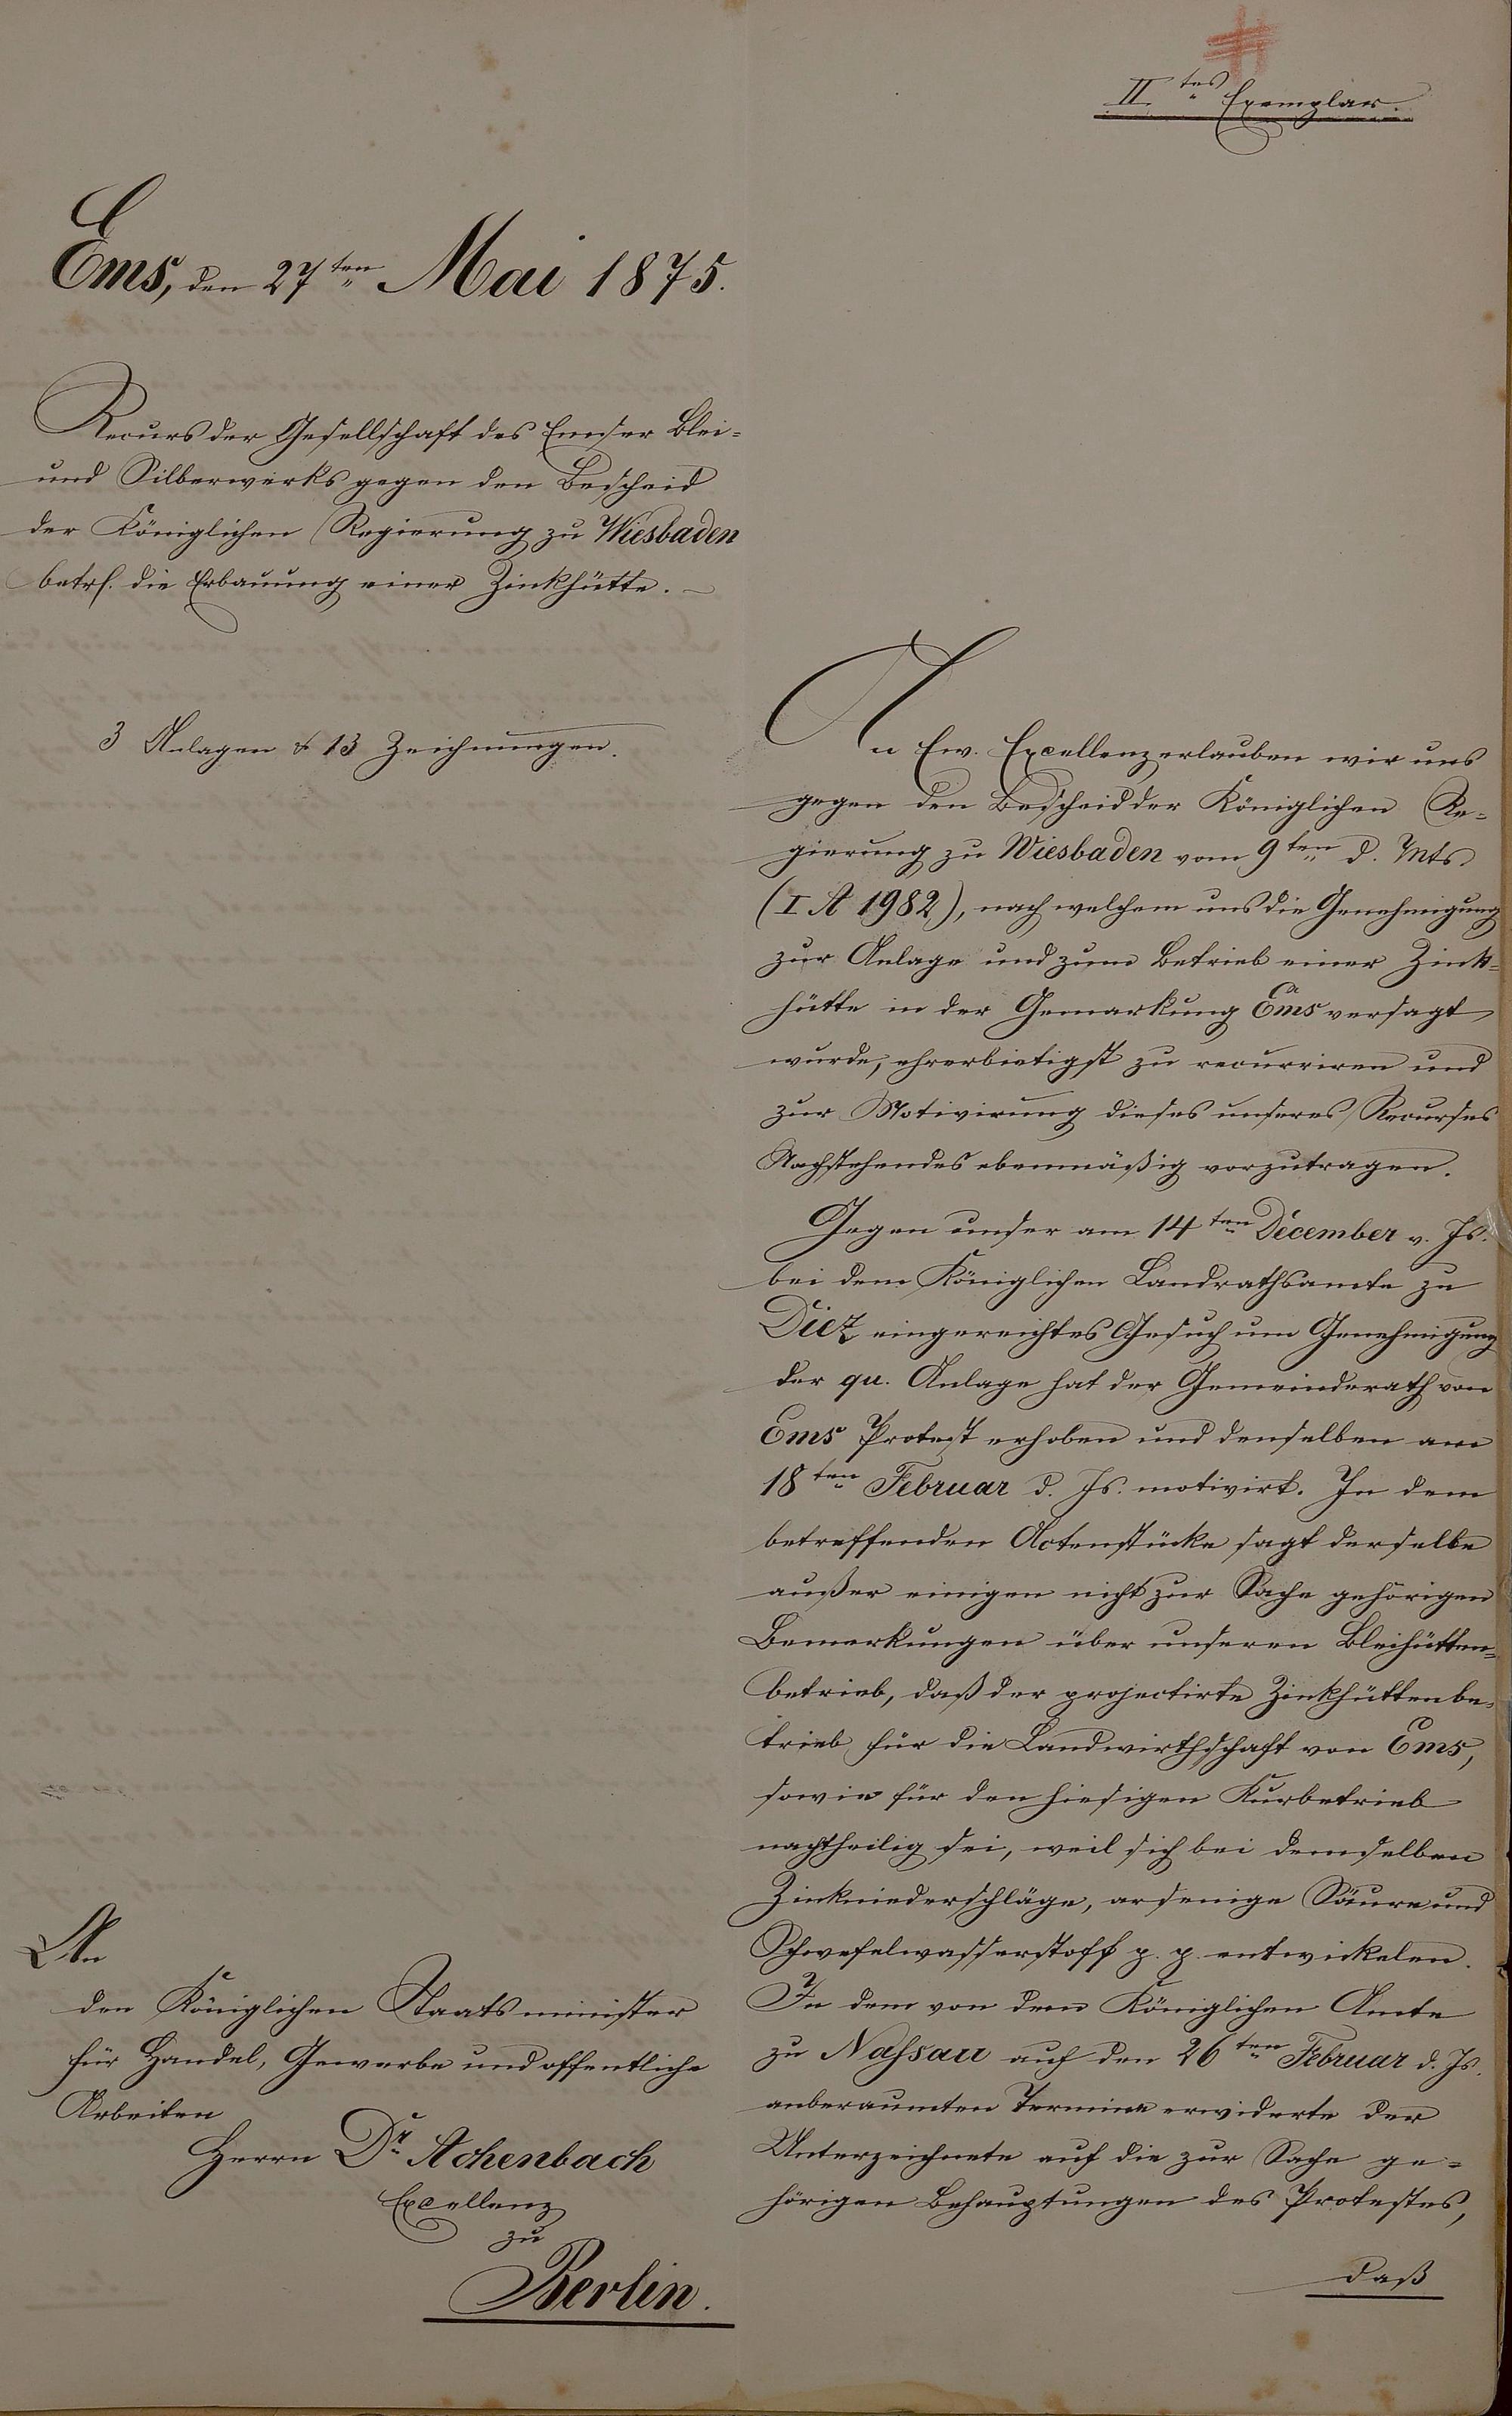 IItes Exemplar.
Ems, den 27ten Mai 1875.
Recurs der Gesellschaft des Emser Blei-
und Silberwerks gegen den Bescheid
der Königlichen Regierung zu Wiesbaden
betrf. die Erbauung einer Zinkhütte.
3 Anlagen & 13 Zeichnungen.
An
den Königlichen Staatsminister
für Handel, Gewerbe und offentliche
Arbeiten
Herrn Dr Achenbach
Excellenz
zu
Berlin.
An Ew. Excellenz erlauben wir uns
gegen den Bescheid der Königlichen Re-
gierung zu Wiesbaden vom 9ten d. Mts.
(I A 1982), nach welchem uns die Genehmigung
zur Anlage und zum Betrieb einer Zink-
hütte in der Gemarkung Ems versagt
wurde, ehrerbietigst zu recurriren und
zur Motivirung dieses unseres Recurses
Nachstehendes ebenmäßig vorzutragen.
Gegen unser am 14ten December v. Js.
bei dem Königlichen Landrathsamte zu
Diez eingereichtes Gesuch um Genehmigung
der qu. Anlage hat der Gemeinderath von
Ems Protest erhoben und denselben am
18ten Februar d. Js. motivirt. In dem
betreffenden Actenstücke sagt derselbe
außer einigen nicht zur Sache gehörigen
Bemerkungen über unseren Bleihütten-
betrieb, daß der projectirte Zinkhüttenbe-
trieb für die Landwirthschaft von Ems,
sowie für den hiesigen Kurbetrieb
nachtheilig sei, weil sich bei demselben
Zinkniederschläge, arsenige Säure und
Schwefelwasserstoff p. p. entwickelen.
In dem von dem Königlichen Amte
zu Nassau auf den 26ten Februar d. Js.
anberaumten Termine erwiderte der
Unterzeichnete auf die zur Sache ge-
hörigen Behauptungen des Protestes,
daß